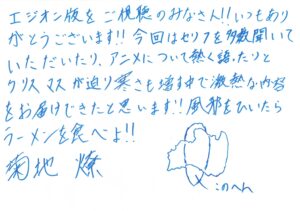 エジオン版をご視聴のみなさん!!いつもあり
がとうございます!!今回はセリフを多数聞いて
いただいたり、アニメについて熱く語ったりと
クリスマスが迫り寒さも増す中で激熱な内容
をお届けできたと思います!!風邪をひいたら
ラーメンを食べよ!!
菊地 燎
このへん